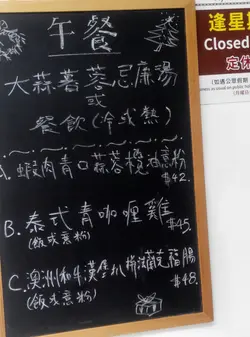 午餐
大蒜薯蓉忌廉湯
或
餐飲(冷或熱)
A. 蝦肉青口蒜蓉欖油意粉
$42.
B. 泰式青咖喱雞 $45.
(飯或意粉)
C. 澳洲和牛漢堡扒拼葡萄牙腸
$48.
(飯或意粉)
逢星
Closed
定休